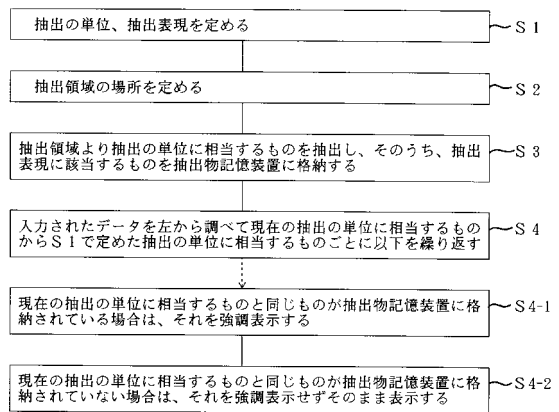 抽出の単位、抽出表現を定める
S 1
抽出領域の場所を定める
S 2
抽出領域より抽出の単位に相当するものを抽出し、そのうち、抽出
表現に該当するものを抽出物記憶装置に格納する
S 3
入力されたデータを左から調べて現在の抽出の単位に相当するもの
からS1で定めた抽出の単位に相当するものごとに以下を繰り返す
S 4
現在の抽出の単位に相当するものと同じものが抽出物記憶装置に格
納されている場合は、それを強調表示する
S4-1
現在の抽出の単位に相当するものと同じものが抽出物記憶装置に格
納されていない場合は、それを強調表示せずそのまま表示する
S4-2